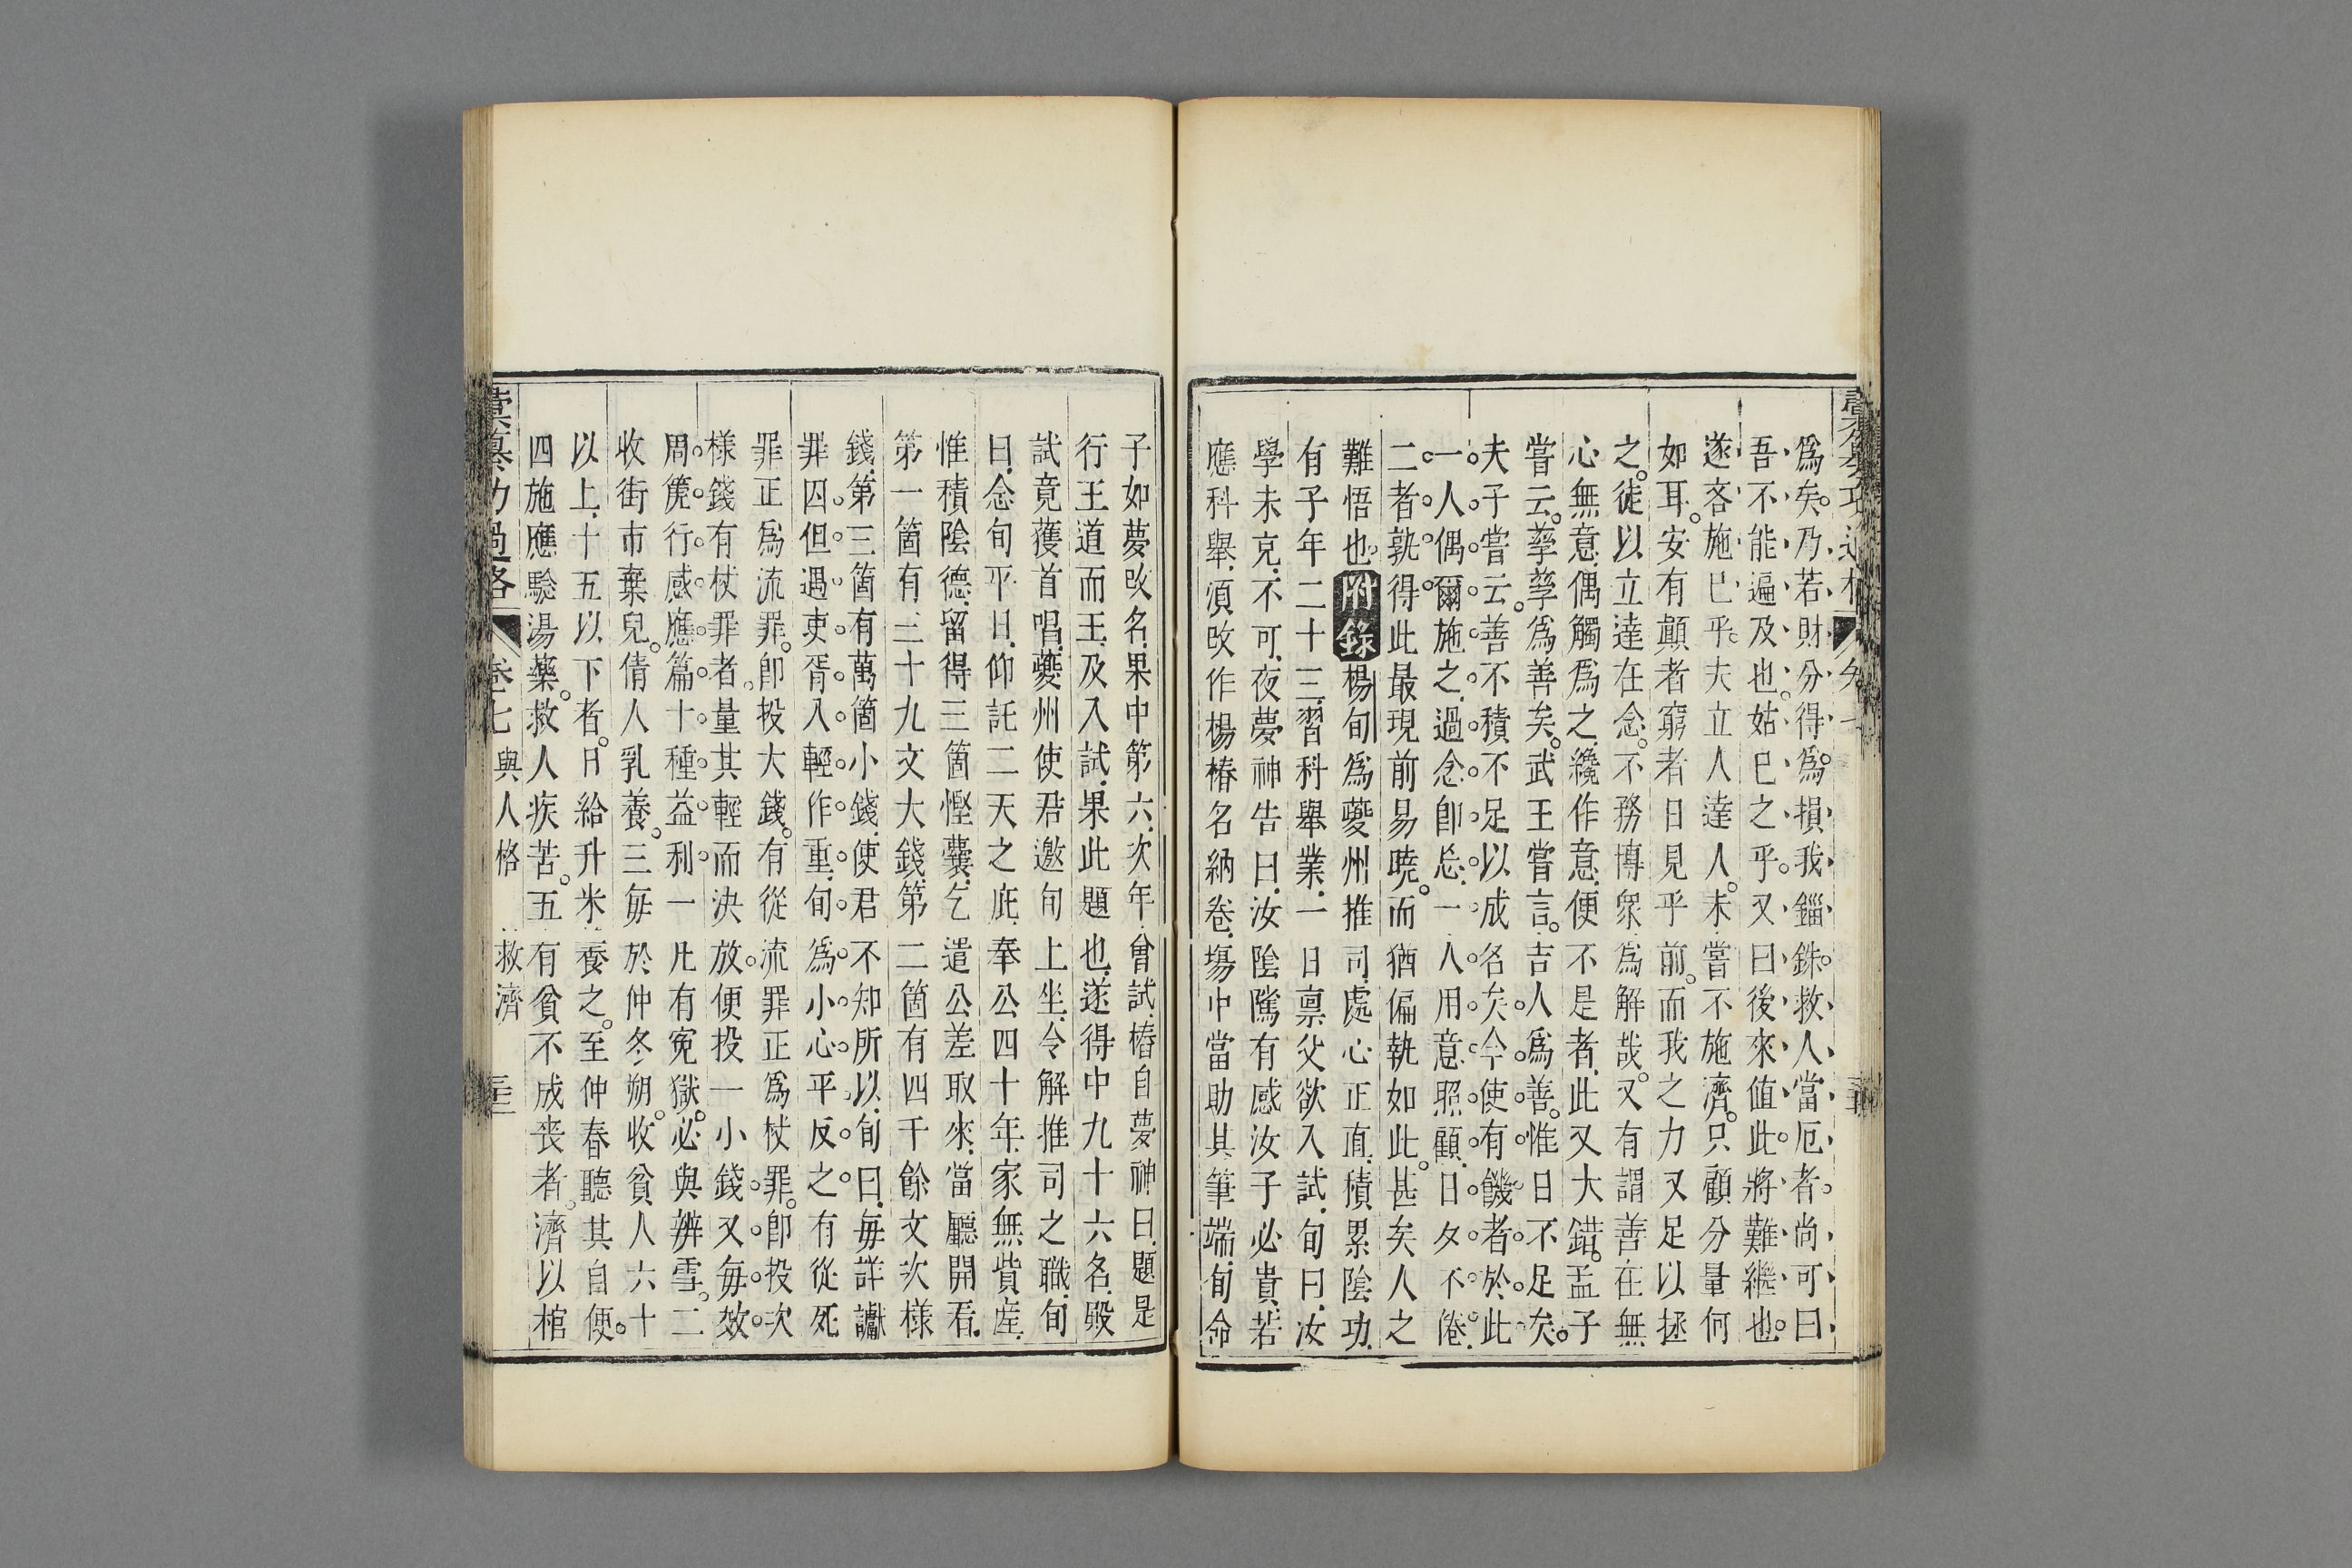 爲矣。乃若財分得爲。損我錙銖。救人當厄者。尚可曰
吾不能遍及也。姑已之乎。又曰後來值此。將難繼也。
遂吝施已乎。夫立人達人。未嘗不施濟。只顧分量何
如耳。安有顛者窮者日見乎前。而我之力又足以拯
之。徒以立達在念。不務博衆爲解哉。又有謂善在無
心無意。偶觸爲之。纔作意。便不是者。此又大錯。孟子
嘗云。孳孳爲善矣。武王嘗言。吉人爲善。惟日不足矣。
夫子嘗云。善不積不足以成名矣。今使有饑者於此
一人偶爾施之。過念卽忘。一人用意照顧。日夕不倦。
二者孰得。此最現前易曉。而猶偏執如此。甚矣人之
難悟也。附錄楊旬爲夔州推司。處心正直。積累陰功。
有子年二十三。習科舉業。一日禀父欲入試。旬曰。汝
學未克。不可。夜夢神告曰。汝陰隲有感。汝子必貴。若
應科舉。須改作楊椿名納卷。塲中當助其筆端。旬命
子如夢改名。果中第六。次年曾試。椿自夢神曰。題是
行王道而王。及入試。果此題也。遂得中九十六名。殿
試竟蒦首唱。夔州使君邀旬上坐。令解推司之職。旬
曰。念旬平日。仰託二天之庇。奉公四十年。家無貲産。
惟積陰德。留得三箇慳囊。乞遣公差取來。當廳開看。
第一箇有三十九文大錢。第二箇有四千餘文次樣
錢。第三箇有萬箇小錢。使君不知所以。旬曰。每詳讞
罪囚。但遇吏胥入輕作重。旬爲小心平反之。有從死
罪正爲流罪。卽投大錢。有從流罪正爲杖罪。卽投次
樣錢。有杖罪者。量其輕而決放。便投一小錢。又每效
周篪行感應篇十種益利。一凡有寃獄。必與辨雪。二
收街市棄兒。倩人乳養。三每於仲冬朔。收貧人六十
以上。十五以下者。日給升米養之。至仲春聽其自便。
四施應驗湯藥。救人疾苦。五有貧不成丧者。濟以棺
彙纂功過格 卷七 與人格 救濟